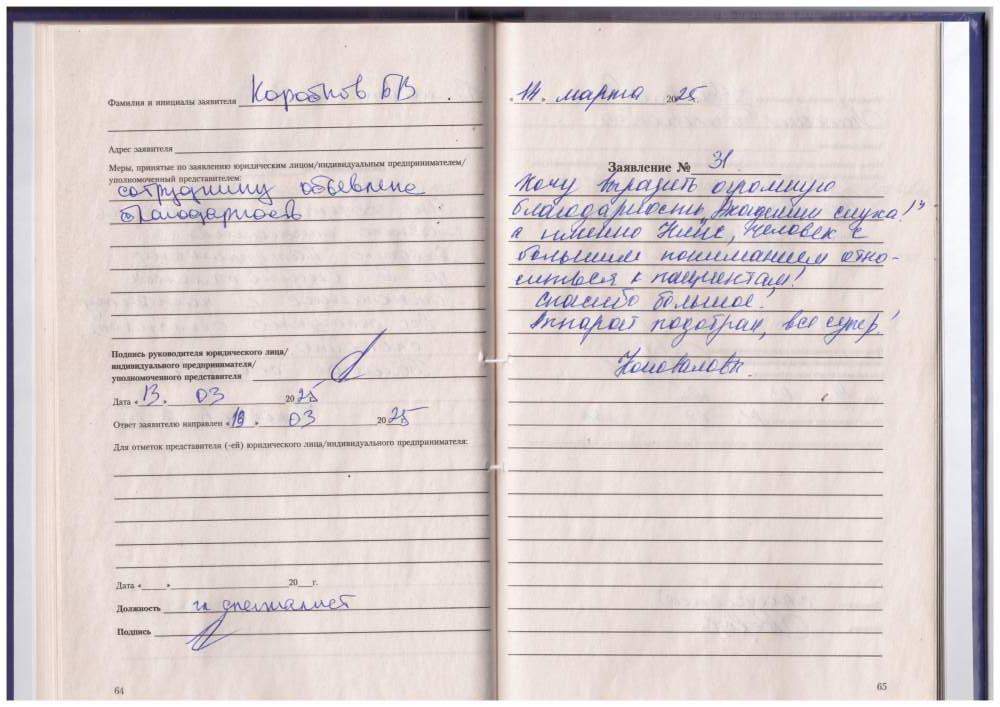 Фамилия и инициалы заявителя Коробков БВ
Адрес заявителя
Меры, принятые по заявлению юридическим лицом/индивидуальным предпринимателем/
уполномоченный представителем:
сотруднику объевлена
благодарность
Подпись руководителя юридического лица/
индивидуального предпринимателя/
уполномоченного представителя
Дата «13» 03 2025
Ответ заявителю направлен «13» 03 2025
Для отметок представителя (-ей) юридического лица/индивидуального предпринимателя:
Дата «___» 20___г.
Должность гл специалист
Подпись
64
14. марта 2025
Заявление № 31
Хочу выразить огромную
благодарность „Академии слуха!"
а именно Нине, человек с
большим пониманием отно-
ситься к пациентам!
Спасибо большое!
Аппарат подобран, все супер!
Коновалова.
65